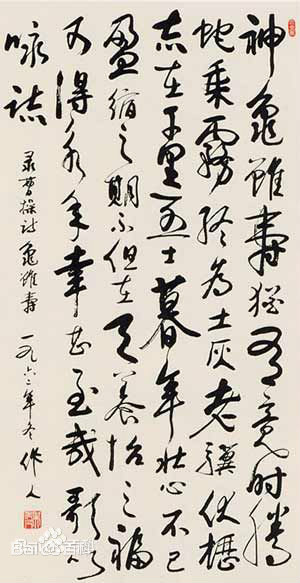 神龜雖壽猶有竟时腾
蛇乘霧终为土灰老驥伏櫪
志在千里烈士暮年壮心不已
盈缩之期不但在天養怡之福
可得永年幸甚至哉歌以
咏志
录曹操诗龜雖寿 一九六二年冬 作人
Bai百科